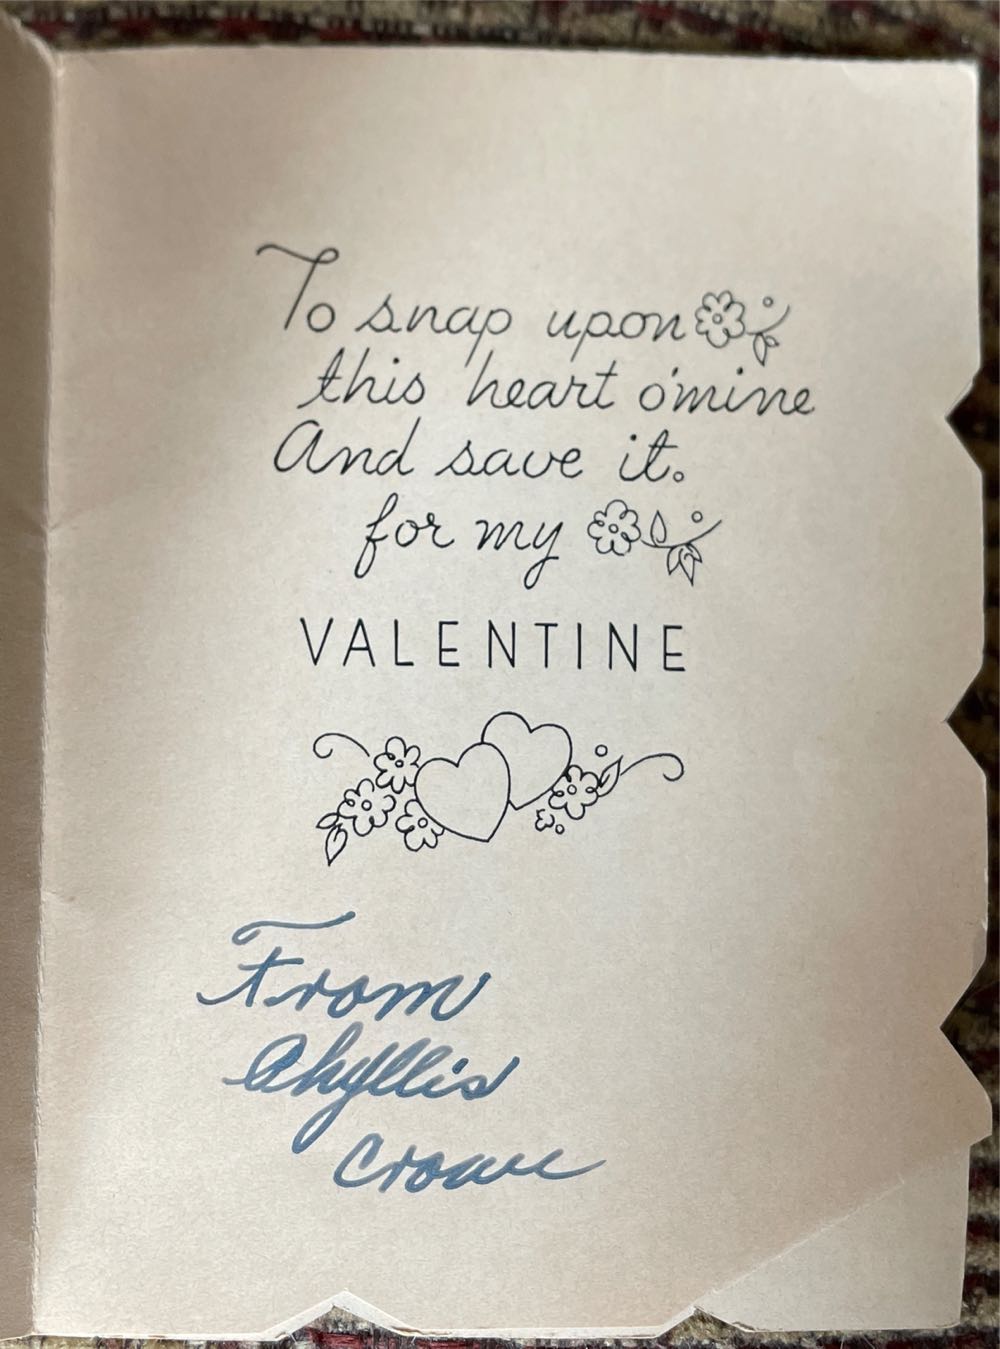 To snap upon
this heart o'mine
And save it.
for my
VALENTINE
From
Phyllis
Crowe